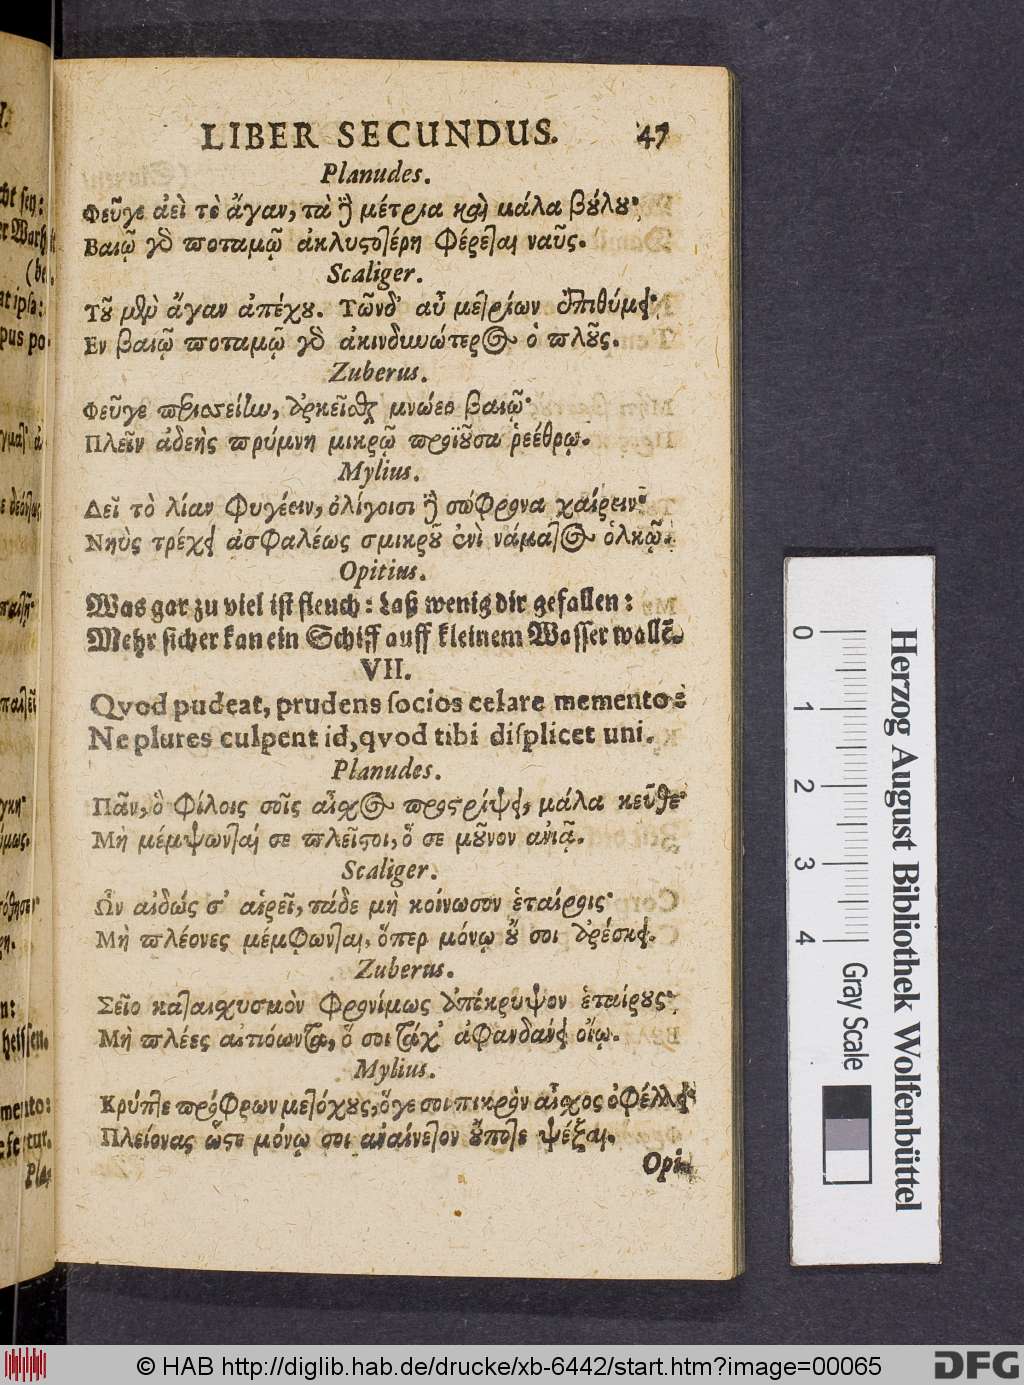 LIBER SECUNDUS. 47
Planudes.
Φεῦγε ἀεὶ τὸ ἄγαν, τὰ δὲ μέτρια καὶ μάλα βύλυ·
Βαιῷ γὸ ποταμῷ ἀκλυστέρη φέρεται ναῦς.
Scaliger.
Τȣ͂ μὲν ἄγαν ἀπέχου. Τῶνδ' αὖ μετρίων ἐπιθύμει·
Εν βαιῷ ποταμῷ γὸ ἀκινδυνώτερος ὁ πλȣ͂ς.
Zuberus.
Φεῦγε μνώεο βαιῷ·
Πλεῖν ἀδεὴς πρύμνη μικρῷ προϊȣ͂σα ῥεέθρῳ.
Mylius.
Δεῖ τὸ λίαν φυγέειν, ὀλίγοισι δὲ σώφρονα χαίρειν·
Νηὺς τρέχει ἀσφαλέως σμικρȣ͂ ἐνὶ νάματος ὁλκῷ.
Opitius.
Was gar zu viel ist fleuch: Laß wenig dir gefallen:
Mehr sicher kan ein Schiff auff kleinem Wasser wallē.
VII.
Qvod pudeat, prudens socios celare memento:
Ne plures culpent id, qvod tibi displicet uni.
Planudes.
Πᾶν, ὃ φίλοις σοῖς αἶσχος προστρίψει, μάλα κεῦθε·
Μὴ μέμψωνταί σε πλεῖστοι, ὅ σε μȣ͂νον ἀνιᾷ.
Scaliger.
Ὧν αἰδώς σ' αἱρεῖ, τάδε μὴ κοίνωσον ἑταίροις·
Μὴ πλέονες μέμφωνται, ὅπερ μόνῳ ȣ̓́ σοι ἀρέσκει.
Zuberus.
Σεῖο καταισχυσμὸν φρονίμως ἀπέκρυψον ἑταίρȣς·
Μὴ πλέες αἰτιόωνται, ὅ σοι τάχ' ἀφανδάνει οἴῳ.
Mylius.
Κρύπτε πρόφρων μετόχȣς, ὅγε σοι πικρὸν αἶσχος ὀφέλλει·
Πλείονας ὥστε μόνῳ σοι ἀναίνετον ȣ̓́ποτε ψέξαι.
Opi-
0 1 2 3 4
Gray Scale
Herzog August Bibliothek Wolfenbüttel
© HAB http://diglib.hab.de/drucke/xb-6442/start.htm?image=00065
DFG